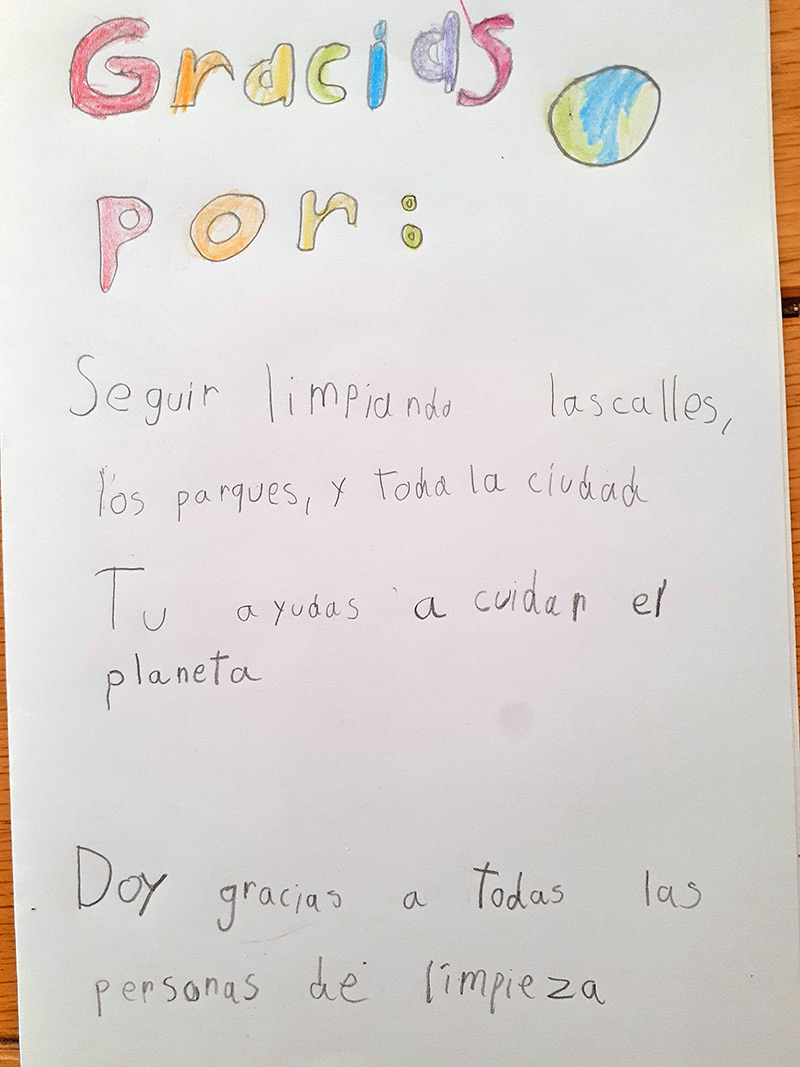 Gracias
por:
Seguir limpiando lascalles,
los parques, y toda la ciudad
Tu ayudas a cuidar el
planeta
Doy gracias a todas las
personas de limpieza